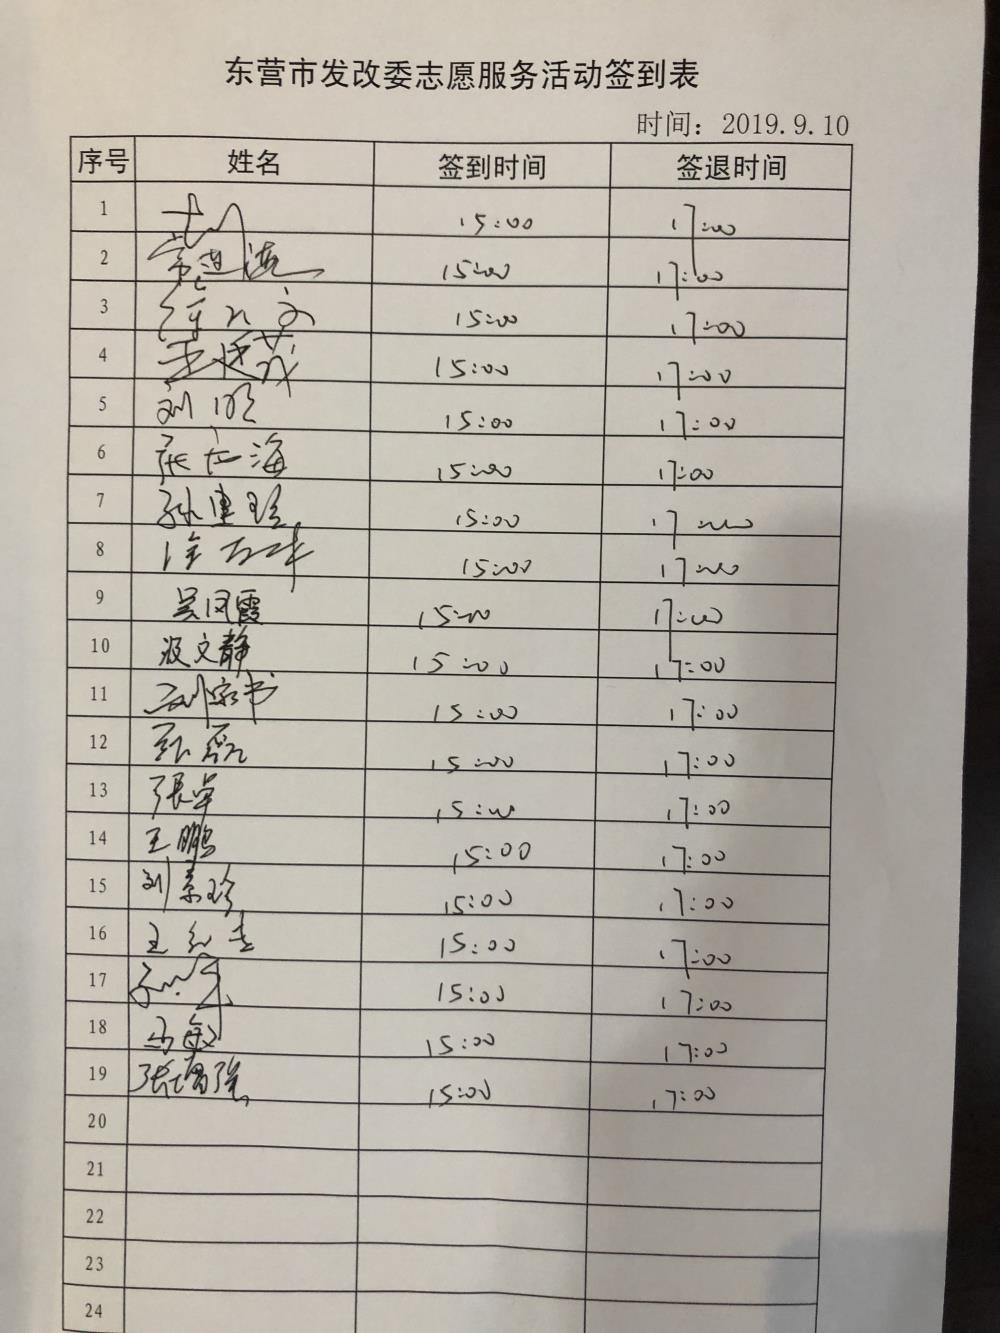 东营市发改委志愿服务活动签到表
时间：2019.9.10
序号 姓名 签到时间 签退时间
1 15:00 17:00
2 15:00 17:00
3 15:00 17:00
4 15:00 17:00
5 刘明 15:00 17:00
6 15:00 17:00
7 孙建珍 15:00 17:00
8 15:00 17:00
9 吴凤霞 15:00 17:00
10 文静 15:00 17:00
11 15:00 17:00
12 15:00 17:00
13 張卓 15:00 17:00
14 王鹏 15:00 17:00
15 刘景珍 15:00 17:00
16 15:00 17:00
17 15:00 17:00
18 马敏 15:00 17:00
19 张增强 15:00 17:00
20
21
22
23
24